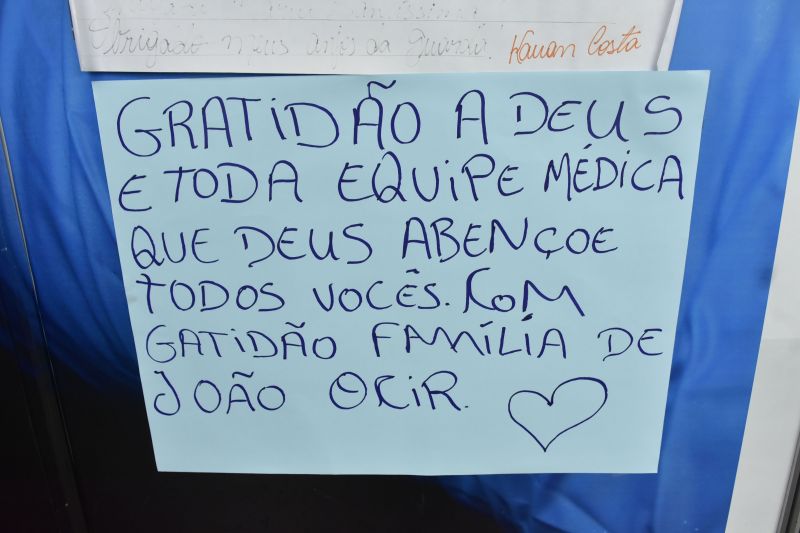 Obrigado meus anjos da guarda! Kauan Costa
GRATIDÃO A DEUS
E TODA EQUIPE MÉDICA
QUE DEUS ABENÇOE
TODOS VOCÊS. COM
GATIDÃO FAMÍLIA DE
JOÃO OCIR.